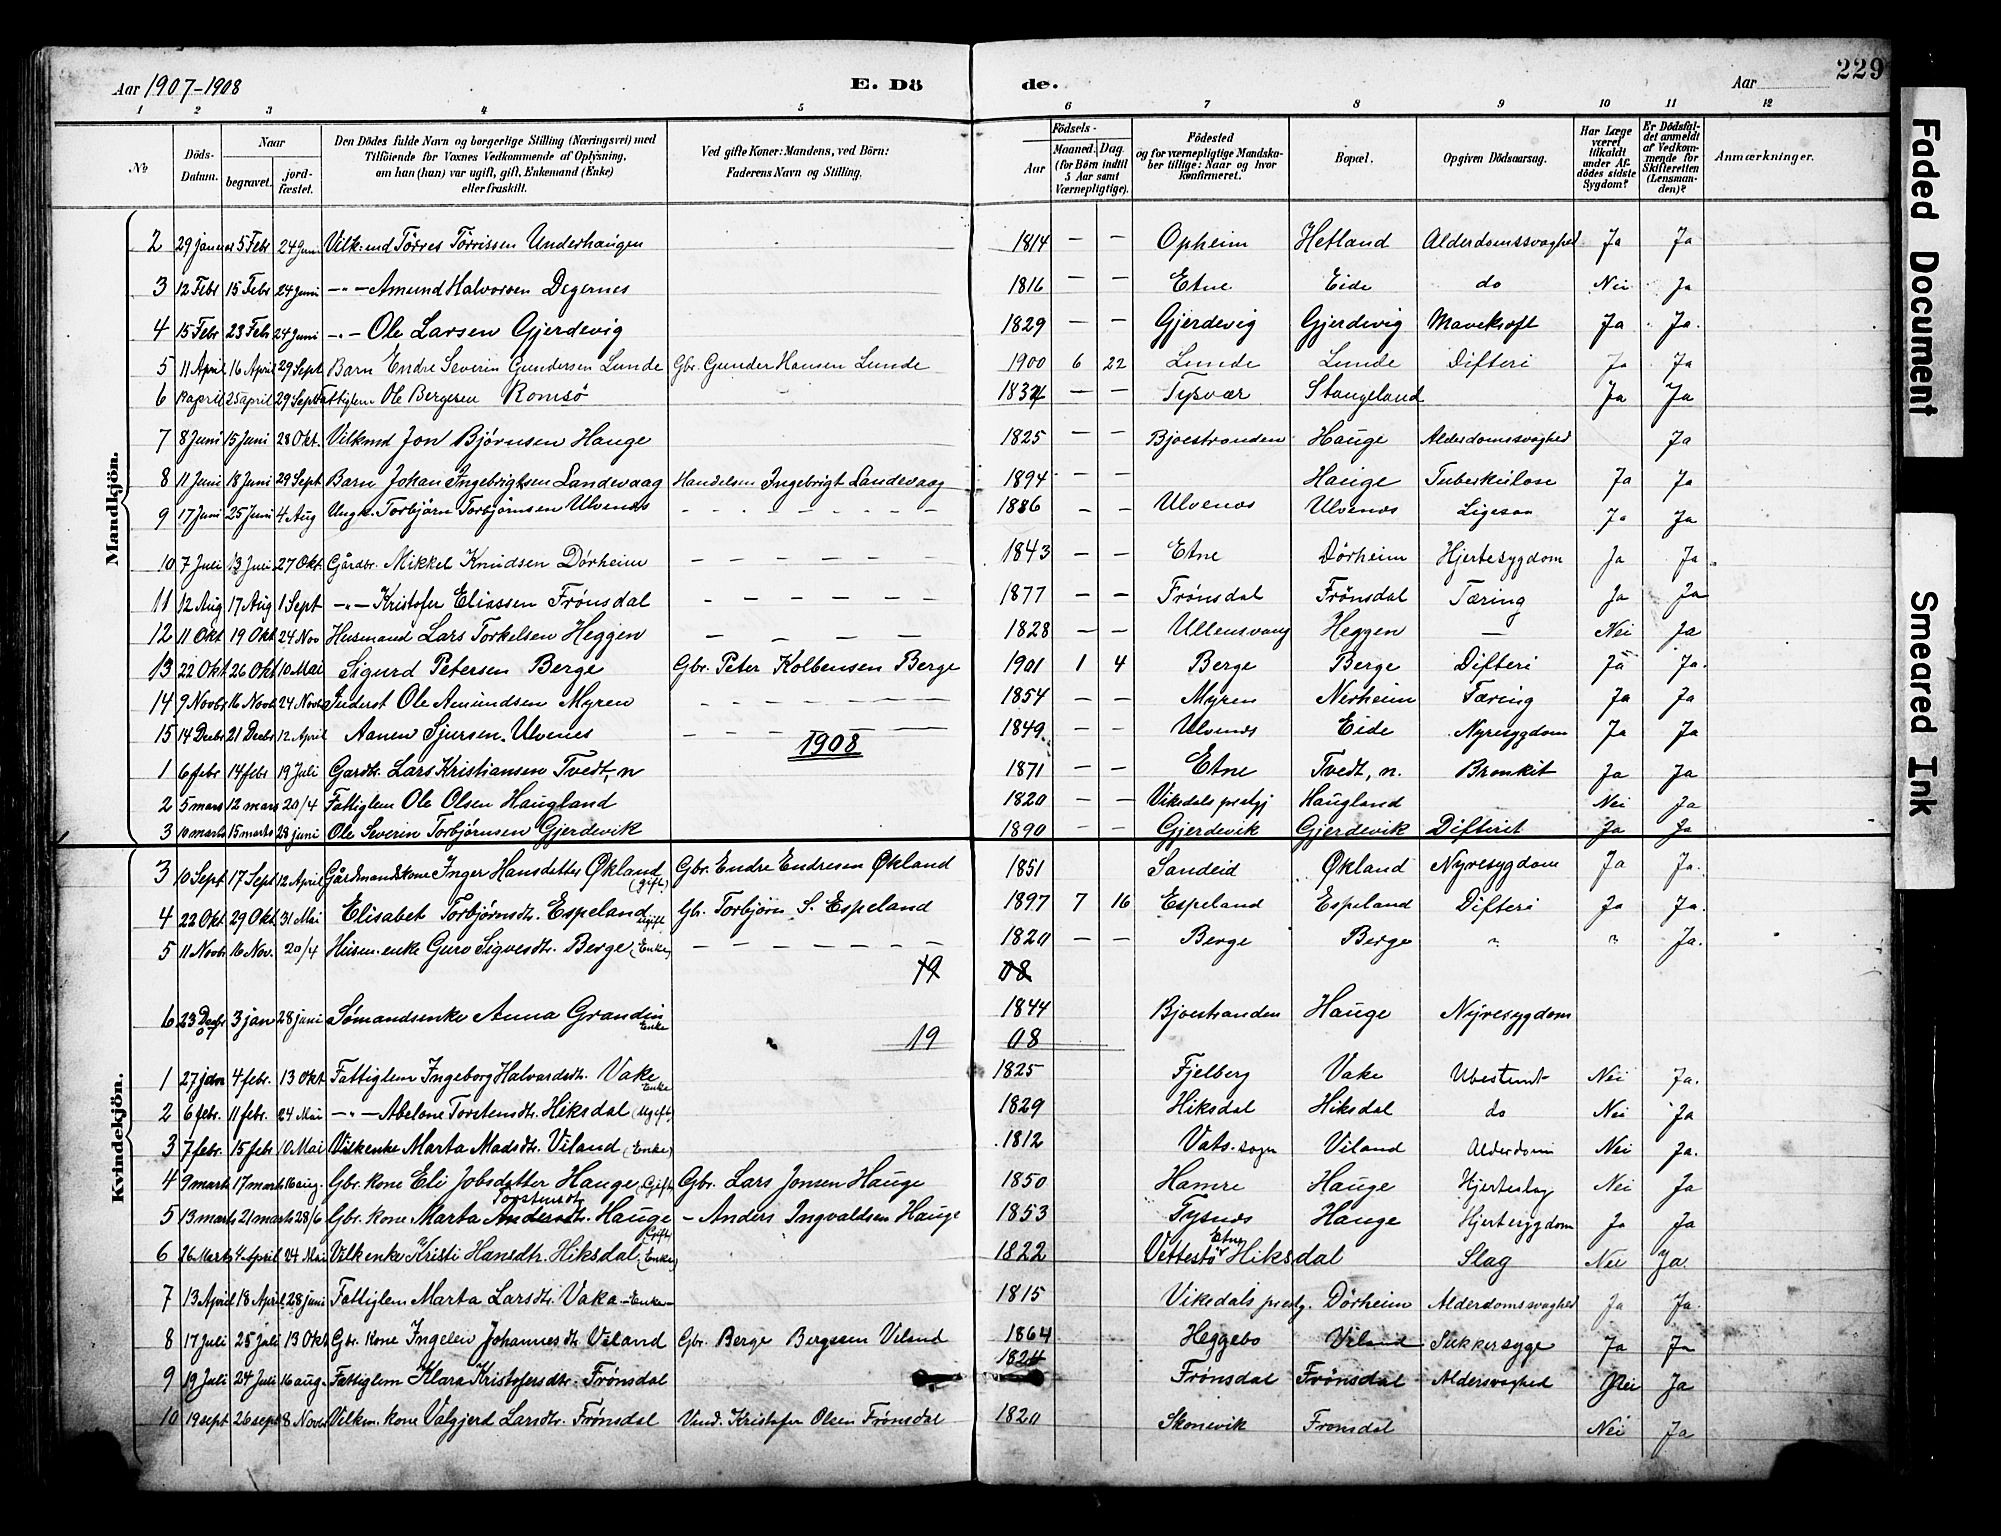 Aar 1907-1908 E. Dö de. Aar 229
1 2 3 4 5 6 7 8 9 10 11 12
No Döds-Datum. Naar begravet. jord-fæstet. Den Dödes fulde Navn og borgerlige Stilling (Næringsvei) med Tilföiende for Voxnes Vedkommende af Oplysning, om han (hun) var ugift, gift, Enkemand (Enke) eller fraskilt. Ved gifte Koner: Mandens, ved Börn: Faderens Navn og Stilling. Födsels- Aar Maaned. Dag. (for Börn indtil 5 Aar samt Værnepligtige). Födested og for værnepligtige Mandskaber tillige: Naar og hvor konfirmeret. Bopæl. Opgiven Dödsaarsag. Har Læge været tilkaldt under Afdödes sidste Sygdom? Er Dödsfaldet anmeldt af Vedkommende for Skifteretten (Lensmanden)? Anmærkninger.
Mandkjön.
2 29 januar 5 Febr 24 Juni Vilk:md Tørres Tørrissen Underhaugen 1814 — — Opheim Hetland Alderdomssvaghed Ja Ja
3 12 Febr 15 Febr 24 Juni —"— Amund Halvorsen Degernes 1816 — — Etne Eide do Nei Ja
4 15 Febr 23 Feb 24 Juni —"— Ole Larsen Gjerdevig 1829 — — Gjerdevig Gjerdevig Maveksoft Ja Ja.
5 11 April 16 April 29 Sept Barn Endre Severin Gundersen Lunde Gbr. Gunder Hansen Lunde 1900 6 22 Lunde Lunde Difteri Ja Ja
6 april 25 april 29 Sept Fattiglem Ole Bergesen Romsö 1834 — — Tysvær Stangeland Ja Ja
7 8 Juni 15 Juni 28 Okt. Vilkmd Jon Bjørnsen Hauge 1825 — — Bjoestranden Hauge Alderdomssvaghed Ja
8 11 Juni 18 Juni 29 Sept Barn Johan Ingebrigtsen Landevaag Handelsm Ingebrigt Landevaag 1894 Hauge Tuberkulose Ja Ja
9 17 Juni 25 Juni 4 Aug Ungk. Torbjörn Torbjörnsen Ulvenes — — — — — 1886 — — Ulvenes Ulvenes Ja Ja
10 7 Juli 13 Juli 27 Okt. Gårdbr. Mikkel Knudsen Dörheim — — — — — 1843 — — Etne Dörheim Hjertesygdom Ja Ja.
11 12 Aug 17 Aug 1 Sept —"— Kristofer Eliassen Frönsdal — — — — — 1877 — — Frönsdal Frönsdal Tæring Ja Ja
12 11 Okt 19 Okt 24 Nov Husmand Lars Torkelsen Heggen — — — — 1828 — — Ullensvang Heggen — Nei Ja
13 22 Okt 26 Okt 10 Mai Sigurd Petersen Berge Gbr. Peter Kolbensen Berge 1901 1 4 Berge Berge Difteri Ja Ja.
14 9 Novbr 16 Novb. 24 Novb. Inderst Ole Amundsen Myren — — — — — 1854 — — Myren Nerheim Tæring Ja Ja
15 14 Decbr 21 Decbr 12 April Aanen Sjursen Ulvenes — — — — — 1849. — — Ulvenes Eide Nyresygdom Ja Ja
1908
1 6 febr 14 febr 19 Juli Gardbr. Lars Kristiansen Tvedt, n 1871 — — Etne Tvedt, n. Bronkit Ja Ja
2 5 mars 12 mars 20/4 Fattiglem Ole Olsen Haugland 1820 — — Vikedals prestgj Haugland Nei Ja
3 10 marts 15 marts 28 juni Ole Severin Torbjörnsen Gjerdevik 1890 — — Gjerdevik Gjerdevik Difterit Ja Ja
Kvindekjön.
3 10 Sept 17 Sept 12 April Gårdmandskone Inger Hansdatter Økland (gift) Gbr. Endre Endresen Økland 1851 Sandeid Økland Nyresygdom Ja Ja.
4 22 Okt 29 Okt. 31 Mai Elisabet Torbjørnsdtr. Espeland ugift Gb. Torbjörn S. Espeland 1897 7 16 Espeland Espeland Difteri Ja Ja.
5 11 Novbr 16 Nov. 20/4 Husm. enke Guro Sigvesdtr. Berge (Enke) — — — — — — 1820 — — Berge Berge " " Ja.
19 08
6 23 Decbr 07 3 jan 28 juni Sømandsenke Anna Grandin Enke 1844 Bjoestranden Hauge Nyresygdom
19 08
1 27 jan 4 febr. 13 Okt. Fattiglem Ingeborg Halvardsdtr. Vake Enke 1825 Fjelberg Vake Ubestemt Nei Ja.
2 6 febr. 11 febr. 24 Mai —"— Abelone Torstensdtr. Hiksdal (Ugift) 1829 Hiksdal Hiksdal do Nei Ja
3 7 febr. 15 febr 10 Mai Vilkenke Marta Madsdtr. Viland (Enke) 1812 Vats. sogn Viland Alderdom Nei Ja.
4 9 marts 17 marts 16 aug. Gbr. kone Eli Jobsdatter Hauge (Gift) Gbr. Lars Jonsen Hauge 1850 Hamre Hauge Hjerteslag Nei Ja
5 13 marts 21 marts 28/6 Gbr. kone Marta Andersdtr. Torstensdtr. Hauge (Gift) — Anders Ingvaldsen Hauge 1853 Tysnes Hauge Hjertesygdom Ja Ja
6 26 Marts 4 April 24 Mai Vilkenke Kristi Hansdtr. Hiksdal (Enke) 1822 Vettestö Etne Hiksdal Slag Nei Ja.
7 13 April 18 April 28 juni Fattiglem Marta Larsdtr. Vaka —Enke— 1815 Vikedals prestg. Dörheim Alderdomssvaghed Ja Ja.
8 17 juli 25 juli 13 Okt Gbr. kone Ingelen Johannesdtr. Viland Gbr. Berge Bergesen Viland 1864 Heggebo Viland Sukkersyge Ja Ja
9 19 Juli 24 Juli 16 aug. Fattiglem Klara Kristofersdtr. Frønsdal 1824 Frønsdal Frønsdal Aldersvaghed Nei Ja
10 19 sept 26 sept 8 Novbr Vilkm. kone Valgjerd Larsdtr. Frønsdal Vmd. Kristofer Olsen Frønsdal 1820 Skonevik Fronsdal Nei Ja
Faded Document
Smeared Ink